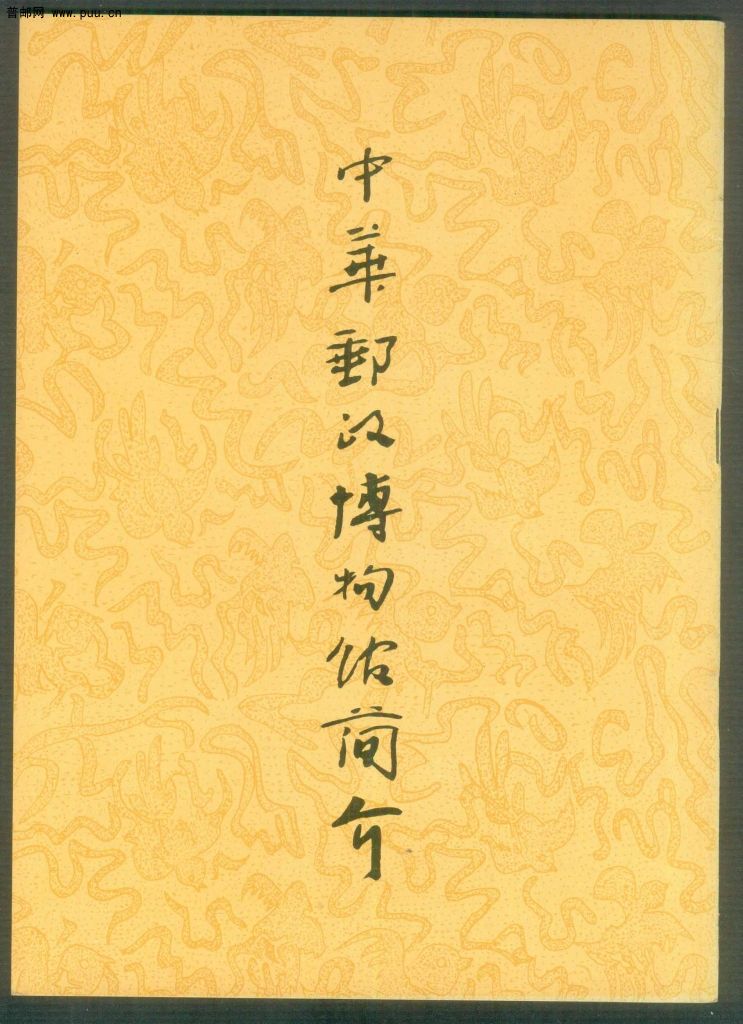 普邮网 www.puu.cn
中華郵政博物馆簡介